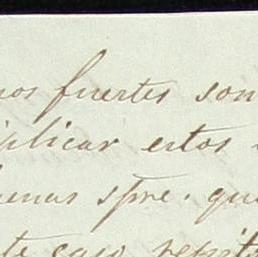 nos fuertes son
plicar estos
buenas spre. que
te caso repit